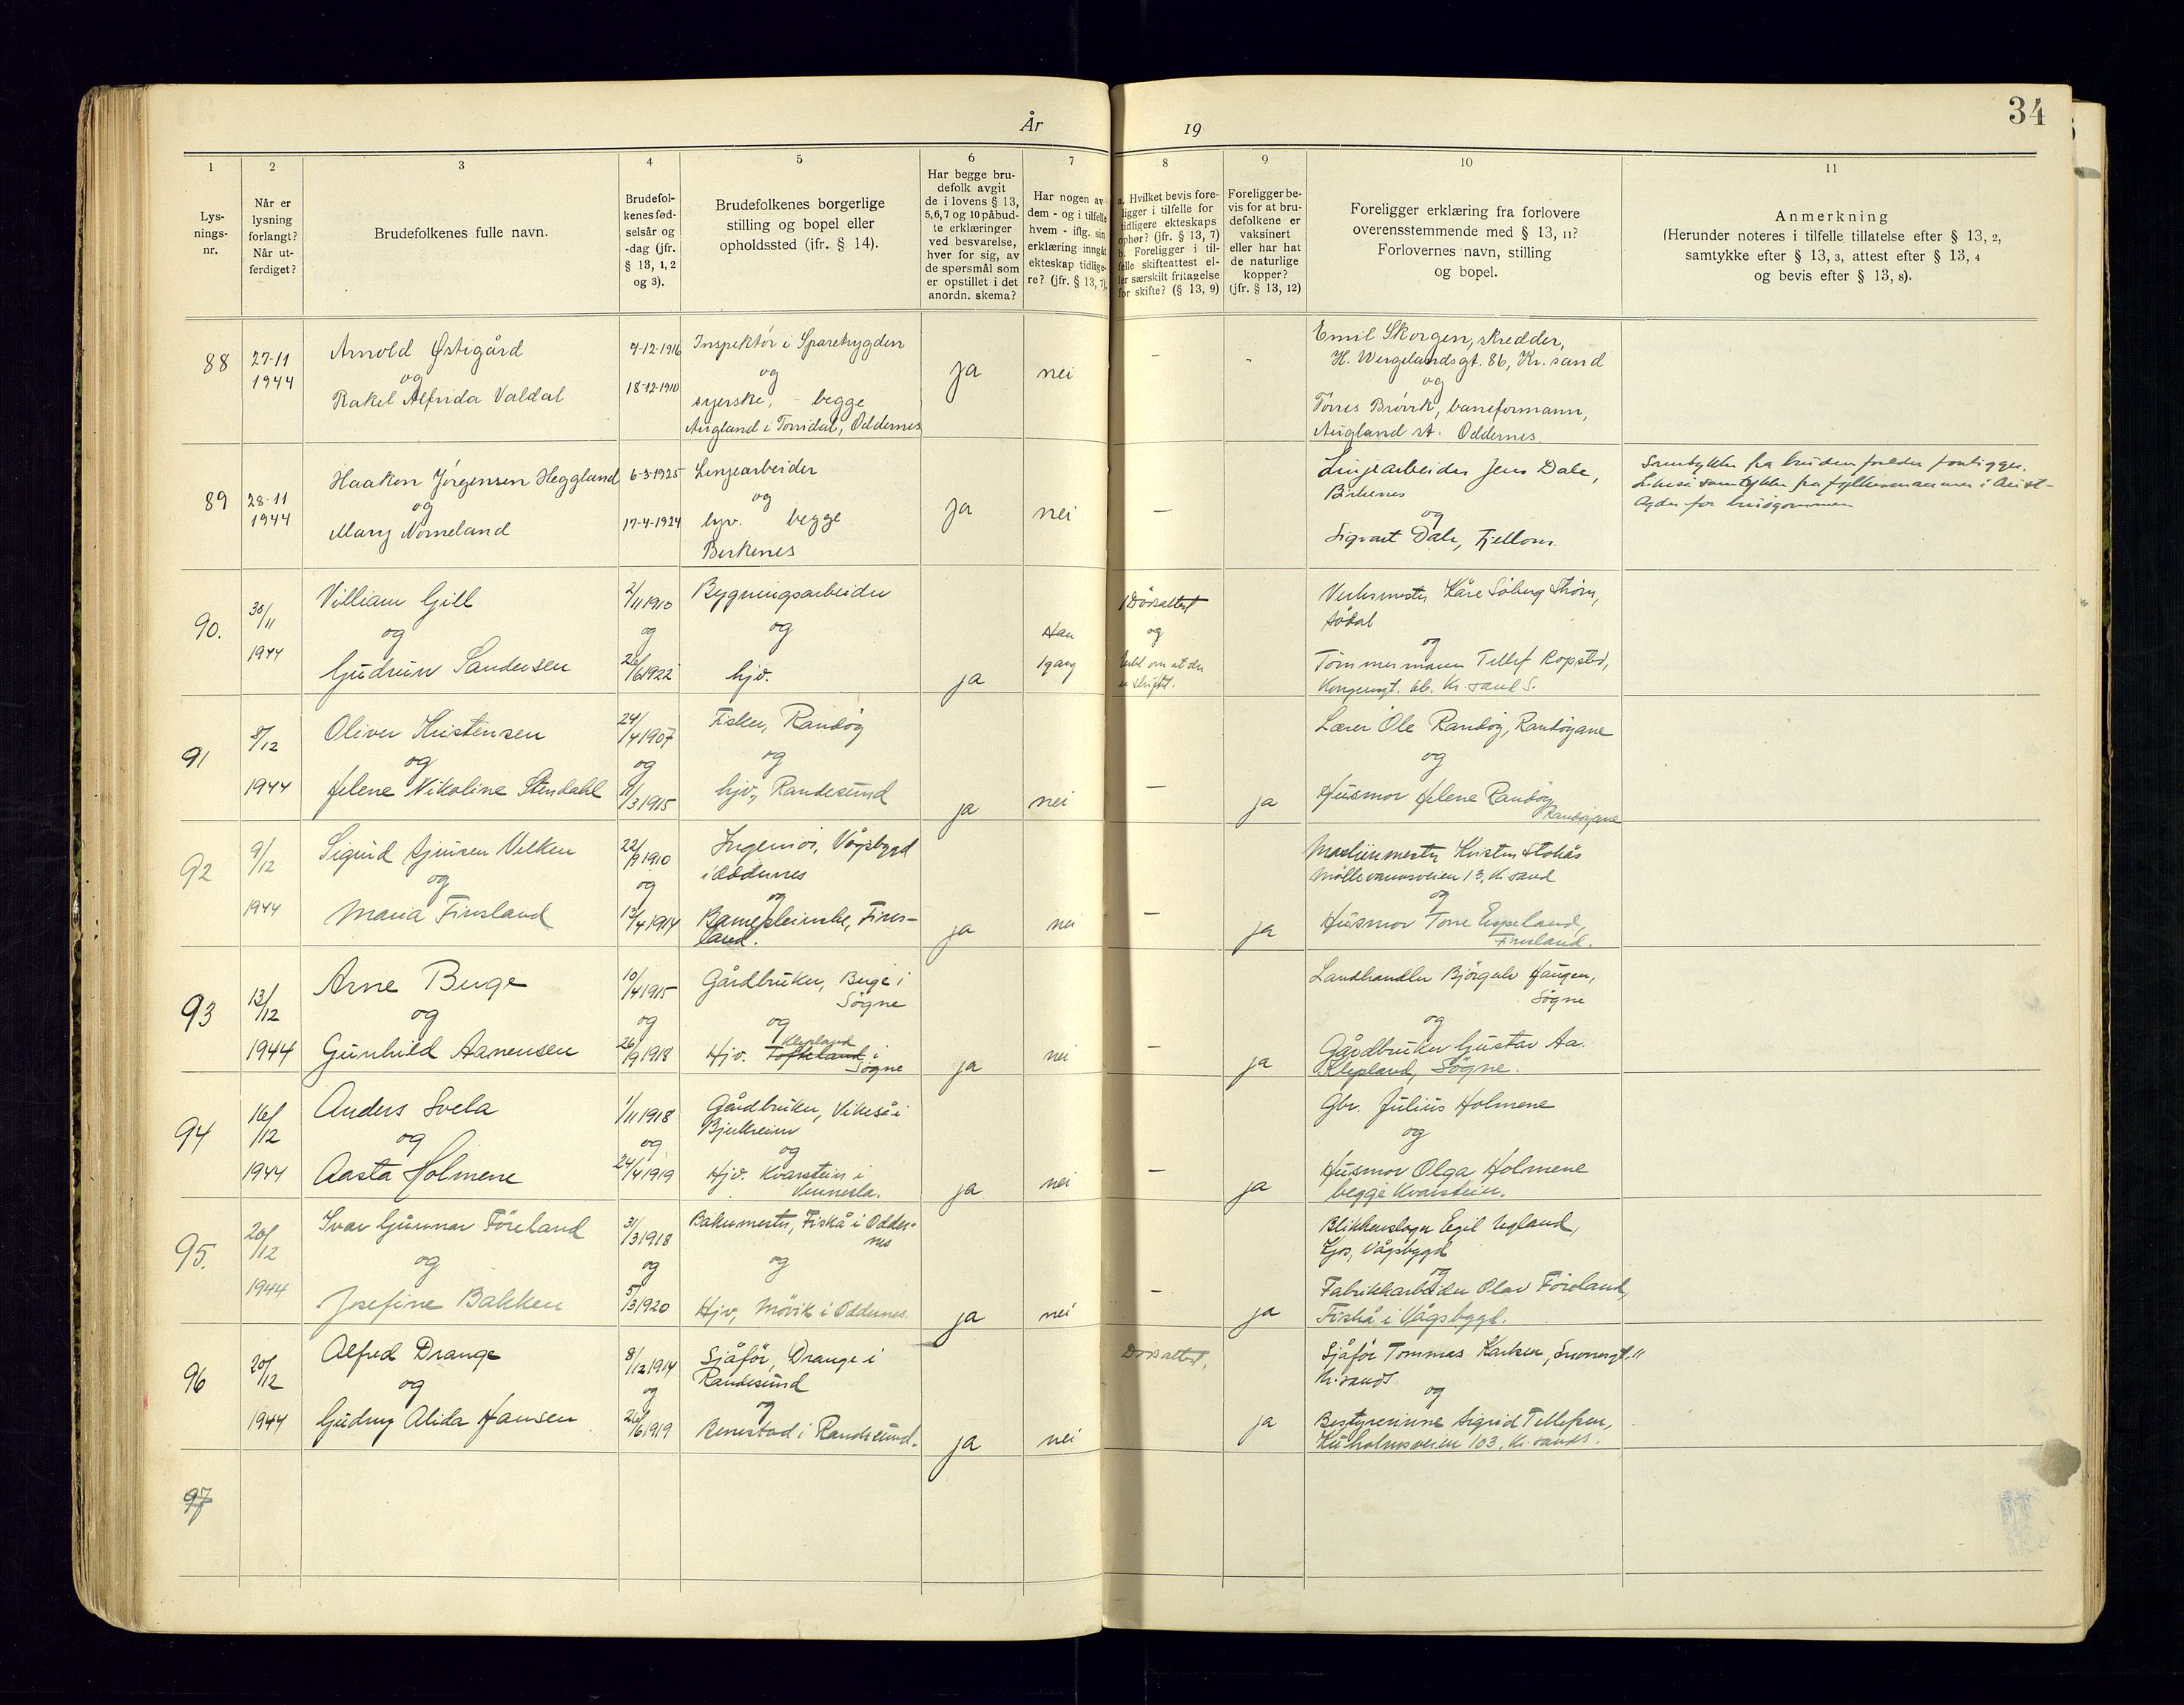 34
År 19
1 2 3 4 5 6 7 8 9 10 11
Lys-
nings-
nr.
Når er
lysning
forlangt?
Når ut-
ferdiget?
Brudefolkenes fulle navn.
Brudefol-
kenes fød-
selsår og
-dag (jfr.
§ 13, 1, 2
og 3).
Brudefolkenes borgerlige
stilling og bopel eller
opholdssted (jfr. § 14).
Har begge bru-
defolk avgit
de i lovens § 13,
5,6,7 og 10 påbud-
te erklæringer
ved besvarelse,
hver for sig, av
de spørsmål som
er opstillet i det
anordn. skema?
Har nogen av
dem - og i tilfelle
hvem - iflg. sin
erklæring inngått
ekteskap tidlige-
re? (jfr. § 13, 7).
a. Hvilket bevis fore-
ligger i tilfelle for
tidligere ekteskaps
ophør? (jfr. § 13, 7)
b. Foreligger i til-
felle skifteattest el-
ler særskilt fritagelse
for skifte? (§ 13, 9)
Foreligger be-
vis for at bru-
defolkene er
vaksinert
eller har hat
de naturlige
kopper?
(jfr. § 13, 12)
Foreligger erklæring fra forlovere
overensstemmende med § 13, 11?
Forlovernes navn, stilling
og bopel.
Anmerkning
(Herunder noteres i tilfelle tillatelse efter § 13, 2,
samtykke efter § 13, 3, attest efter § 13, 4
og bevis efter § 13, 8).
88
27-11
1944
Arnold Østigård
og
Rakel Alfrida Valdal
7-12-1916
18-12-1910
Inspektör i Sparetrygden
og
syerske, - begge
Augland i Torridal, Oddernes
ja
nei
–
Emil Skorgen, skredder,
H. Wergelandsgt. 86, Kr. sand
og
Torres Brövik, baneformann,
Augland st. Oddernes.
89
28-11
1944
Haakon Jörgensen Heggland
og
Mary Nomeland
6-3-1925
17-4-1924
Linjearbeider
og
hjv. begge
Birkenes
ja
nei
–
Linjearbeider Jens Dale,
Birkenes
og
Sigvart Dale,
Samtykke fra brudens foreldre foreligger.
Likeså samtykke fra fylkesmannen i Aust-
Agder for brudgommen
90.
30/11
1944
Villiam Gill
og
Gudrun Sandersen
2/11 1910
og
26/6 1922
Bygningsarbeider
og
hjv.
ja
Han
1 gang
Dödsattest
og
Erkl. om at der
er skiftet.
Verksmester Kåre Söberg Thom,
Sødal
og
Tömmermann Tellef Ropstad,
Kongensgt. 6b. Kr. sand S.
91
8/12
1944
Oliver Kristensen
og
Helene Nikoline Stendahl
24/4 1907
og
11/3 1915
Fisker, Randöy
og
hjv., Randesund
ja
nei
–
ja
Lærer Ole Randöy, Randöyane
og
Husmor Helene Randöy
Randöyane
92
9/12
1944
Sigurd Sjursen Velken
og
Maria Finsland
22/9 1910
og
13/4 1914
Ingeniör, Vågsbygd
i Oddernes
og
Barnepleierske, Fins-
land.
ja
nei
–
ja
Maskinmester Kristen Stokås
Möllevannsveien 13, Kr. sand
og
Husmor Tone Espeland,
Finsland.
93
13/12
1944
Arne Buge
og
Gunhild Aanensen
10/4 1915
og
26/9 1918
Gårdbruker, Buge i
Sögne
og
Klepland
Hjv. Tofteland i
Sögne
ja
nei
–
ja
Landhandler Björgulv Haugen,
Sögne
og
Gårdbruker Gustav Aa.
Klepland, Sögne.
94
16/12
1944
Anders Svela
og
Aasta Holmene
1/11 1918
og
24/4 1919
Gårdbruker, Vikeså i
Bjerkreim
og
Hjv. Kvarstein i
Vennesla.
ja
nei
–
ja
Gbr. Julius Holmene
og
Husmor Olga Holmene
begge Kvarstein.
95.
20/12
1944
Ivar Gunnar Föreland
og
Josefine Bakken
31/3 1918
og
5/3 1920
Bakermester, Fiskå i Odder-
nes
og
Hjv, Mövik i Oddernes.
ja
nei
–
ja
Blikkenslager Egil Ugland,
Kjos, Vågsbygd
og
Fabrikkarbeider Olav Föreland,
Fiskå i Vågsbygd.
96
20/12
1944
Alfred Drange
og
Gudny Alida Hansen
8/12 1914
og
26/6 1919
Sjåför, Drange i
Randesund
og
Benestad i Randesund.
ja
nei
Dödsattest.
ja
Sjåför Tommas Karlsen, 11
Kr. sand S.
og
Bestyrerinne Sigrid Tellefsen,
Kuholmsveien 103, Kr. sand S.
97